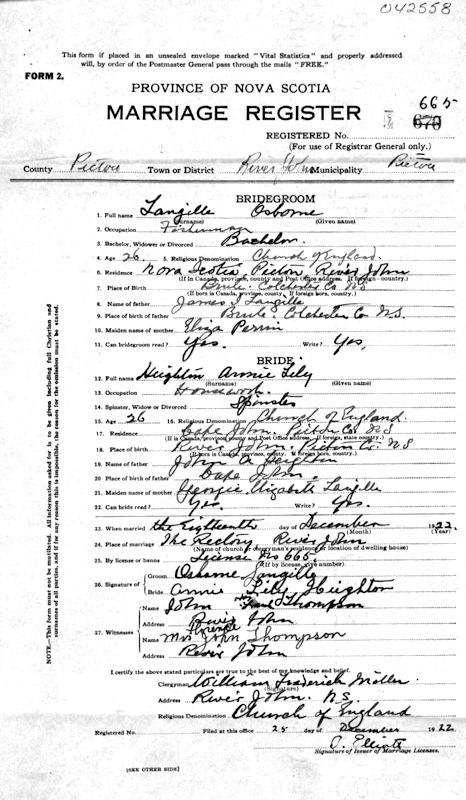 042558
This form if placed in an unsealed envelope marked "Vital Statistics" and properly addressed
will, by order of the Postmaster General pass through the mails "FREE."
FORM 2.
PROVINCE OF NOVA SCOTIA
MARRIAGE REGISTER
665
REGISTERED No. 670
(For use of Registrar General only.)
County Pictou Town or District River John Municipality Pictou
BRIDEGROOM
1. Full name Langille Osborne
(Surname) (Given name)
2. Occupation Fisherman
3. Bachelor, Widower or Divorced Bachelor
4. Age 26. 5. Religious Denomination Church of England.
6. Residence Nova Scotia, Pictou, River John
(If in Canada, province, county and Post Office address. If foreign - country.)
7. Place of Birth Brule. Colchester Co NS
(If born in Canada, province, county. If foreign born, country.)
8. Name of father James J Langille
9. Place of birth of father Brule. Colchester Co N.S.
10. Maiden name of mother Eliza Perrin
11. Can bridegroom read? Yes. Write? Yes.
BRIDE
12. Full name Heighton Annie Lily
(Surname) (Given name)
13. Occupation Housework.
14. Spinster, Widow or Divorced Spinster
15. Age 26 16. Religious Denomination Church of England.
17. Residence Cape John. Pictou Co. NS
(If in Canada, province, county and Post Office Address. If foreign, state country.)
18. Place of birth River John. Pictou Co. NS
(If born in Canada, province, county. If foreign born, country.)
19. Name of father John A Heighton
20. Place of birth of father Cape John.
21. Maiden name of mother Georgie Elizabeth Langille
22. Can bride read? Yes. Write? Yes.
23. When married the Eighteenth day of December 1922
(Month) (Year)
24. Place of marriage The Rectory River John
(Name of church or clergyman's residence or location of dwelling house)
25. By license or banns License No 665
(If by license, give number)
26. Signature of Groom Osborne Langille
Bride Annie Lily Heighton
27. Witnesses Name John Thompson
Address River John
Name Mrs John Thompson
Address River John
I certify the above stated particulars are true to the best of my knowledge and belief.
Clergyman William Frederick Moller
(Signature)
Address River John. N.S.
Religious Denomination Church of England
Registered No. Filed at this office 25 day of December 1922
O. Elliott
Signature of Issuer of Marriage Licenses.
[SEE OTHER SIDE]
NOTE.—This form must not be mutilated. All information asked for is to be given including full Christian and
surnames of all parties, and if for any reason this is impossible, the reason for the omission must be stated.